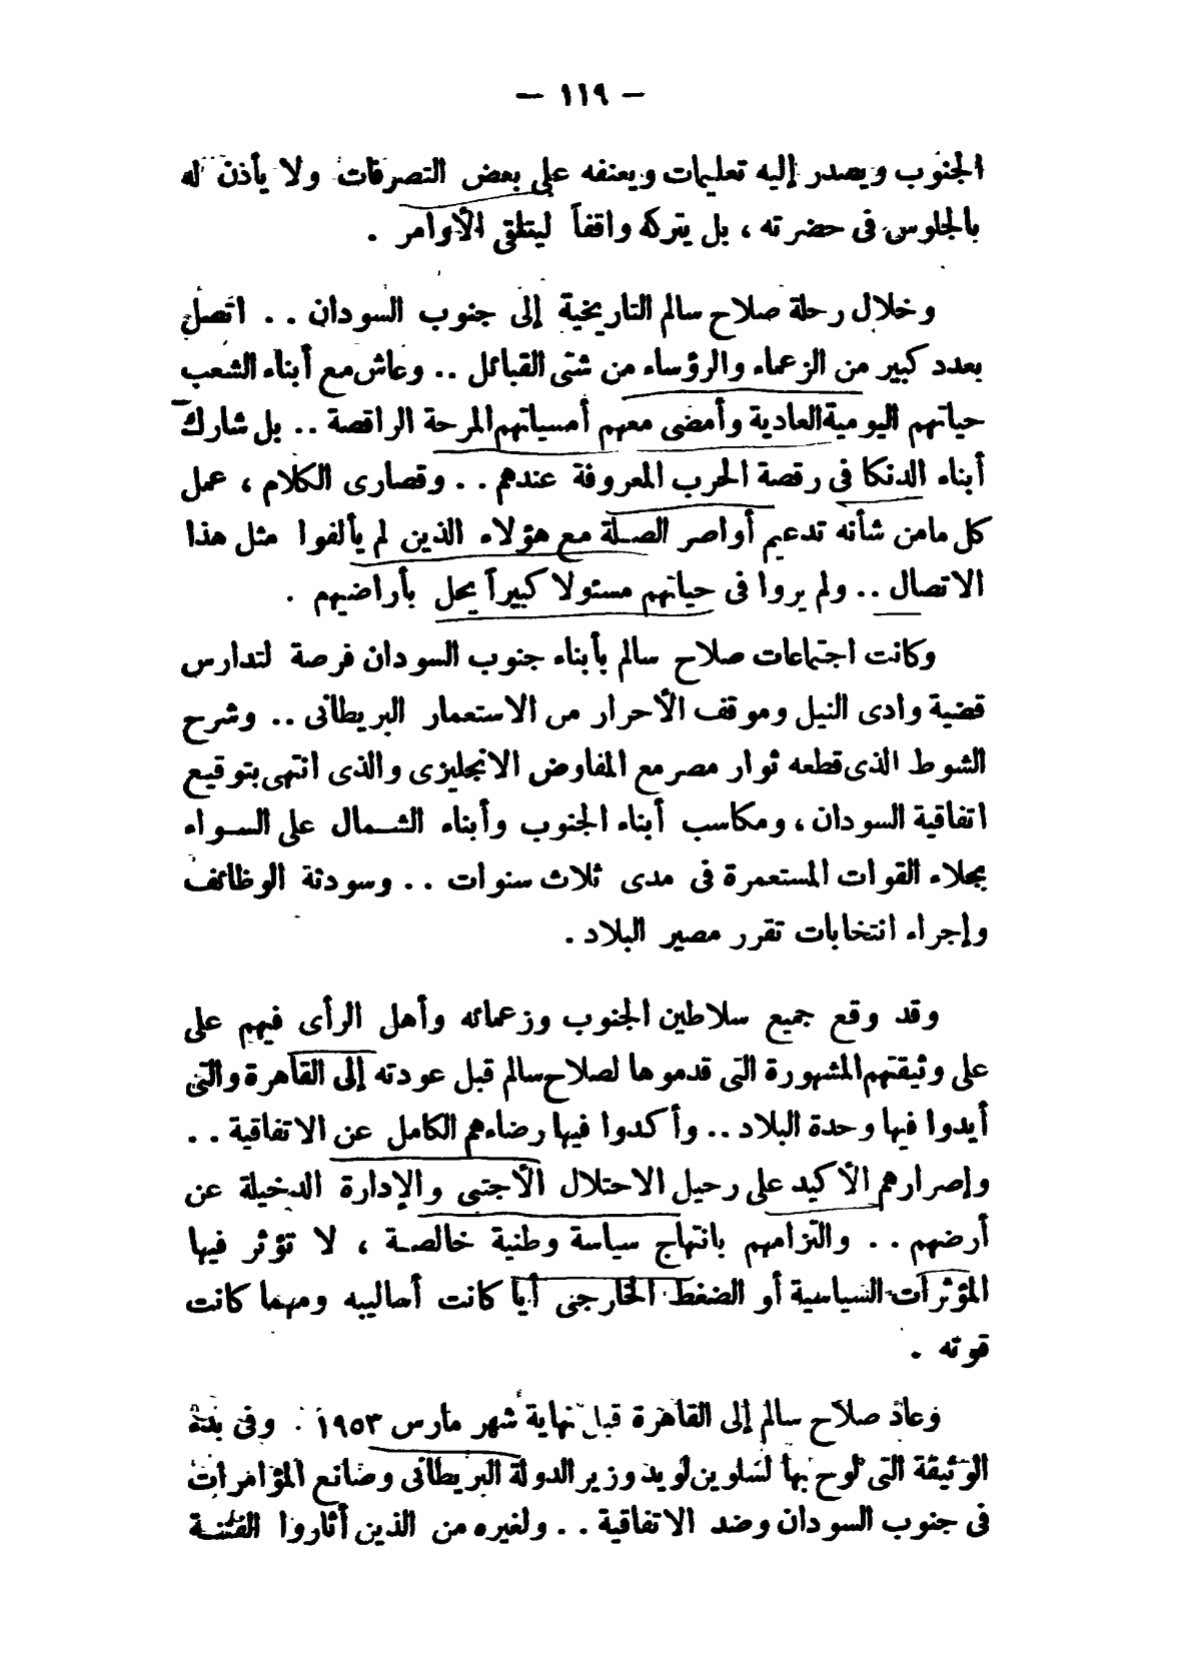 — ١١٩ —
الجنوب ويصدر إليه تعليمات ويعنفه على بعض التصرفات ولا يأذن له
بالجلوس فى حضرته ، بل يتركه واقفاً ليتلقى الأوامر .
وخلال رحلة صلاح سالم التاريخية إلى جنوب السودان . . اتصل
بعدد كبير من الزعماء والرؤساء من شتى القبائل . . وعاش مع أبناء الشعب
حياتهم اليومية العادية وأمضى معهم أمسياتهم المرحة الراقصة . . بل شارك
أبناء الدنكا فى رقصة الحرب المعروفة عندهم . . وقصارى الكلام ، عمل
كل مامن شأنه تدعيم أواصر الصلة مع هؤلاء الذين لم يألفوا مثل هذا
الاتصال . . ولم يروا فى حياتهم مسئولا كبيراً يحل بأراضيهم .
وكانت اجتماعات صلاح سالم بأبناء جنوب السودان فرصة لتدارس
قضية وادى النيل وموقف الأحرار من الاستعمار البريطانى . . وشرح
الشوط الذى قطعه ثوار مصر مع المفاوض الانجليزى والذى انتهى بتوقيع
اتفاقية السودان ، ومكاسب أبناء الجنوب وأبناء الشمال على السواء
بجلاء القوات المستعمرة فى مدى ثلاث سنوات . . وسودنة الوظائف
وإجراء انتخابات تقرر مصير البلاد .
وقد وقع جميع سلاطين الجنوب وزعمائه وأهل الرأى فيهم على
على وثيقتهم المشهورة التى قدموها لصلاح سالم قبل عودته إلى القاهرة والتى
أيدوا فيها وحدة البلاد . . وأكدوا فيها رضاءهم الكامل عن الاتفاقية . .
وإصرارهم الأكيد على رحيل الاحتلال الأجنبى والإدارة الدخيلة عن
أرضهم . . والتزامهم بانتهاج سياسة وطنية خالصة ، لا تؤثر فيها
المؤثرات السياسية أو الضغط الخارجى أيا كانت أساليبه ومهما كانت
قوته .
وعاد صلاح سالم إلى القاهرة قبل نهاية شهر مارس ١٩٥٣ . وفى يده
الوثيقة التى لوح بها لسلوين لويد وزير الدولة البريطانى وصانع المؤامرات
فى جنوب السودان وضد الاتفاقية . . ولغيره من الذين أثاروا الفتنة